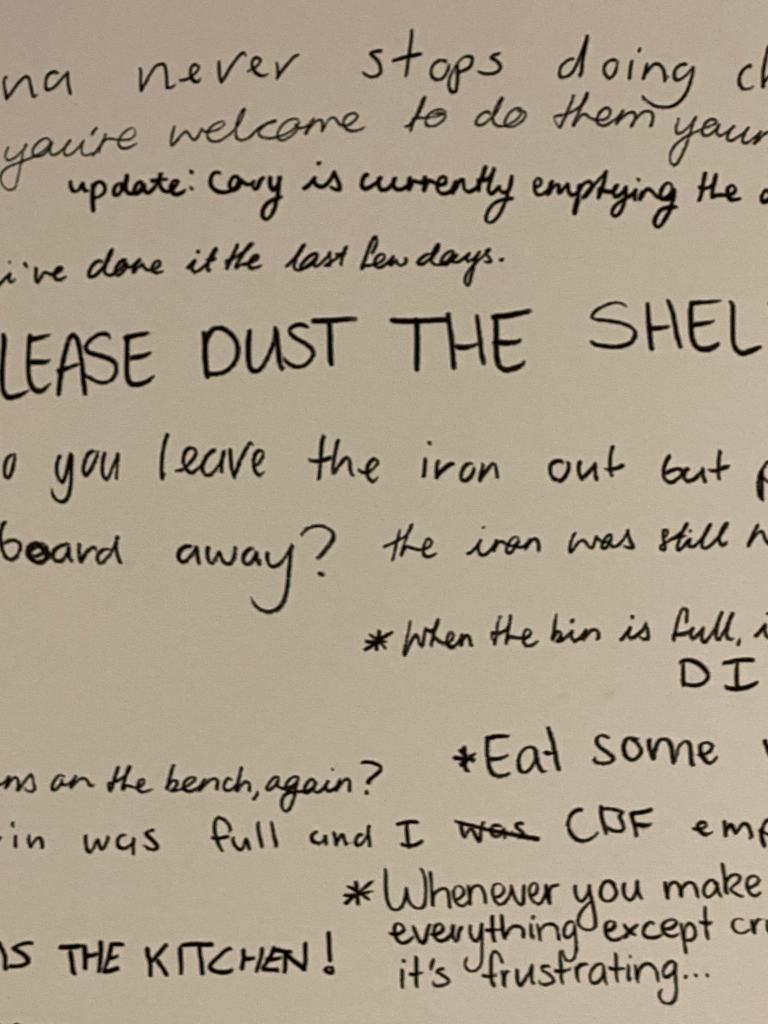 na never stops doing ch
you're welcome to do them your
update: Cory is currently emptying the d
i've done it the last few days.
LEASE DUST THE SHEL
o you leave the iron out but p
board away? the iron was still h
* When the bin is full, i
DI
ns on the bench, again? * Eat some
in was full and I was CBF emp
* Whenever you make
everything except cr
AS THE KITCHEN! it's frustrating...